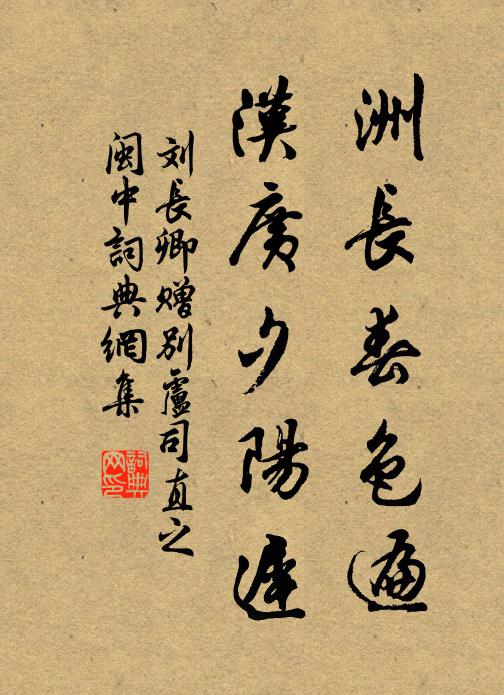 洲長春色遍
漢廣夕陽遲
刘長卿赠别盧司直之
閩中詞典網集
詞典网印